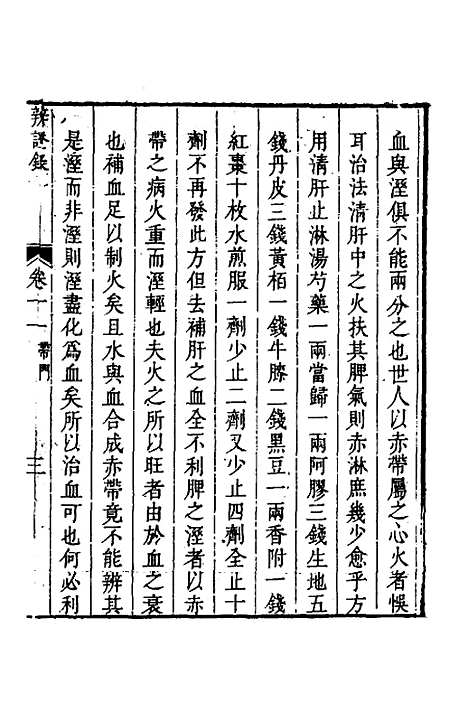 血與溼俱不能兩分之也世人以赤帶屬之心火者悞
耳治法清肝中之火扶其脾氣則赤淋庶幾少愈乎方
用清肝止淋湯芍藥一兩當歸一兩阿膠三錢生地五
錢丹皮三錢黃栢一錢牛膝二錢黑豆一兩香附一錢
紅棗十枚水煎服一劑少止二劑又少止四劑全止十
劑不再發此方但去補肝之血全不利脾之溼者以赤
帶之病火重而溼輕也夫火之所以旺者由於血之衰
也補血足以制火矣且水與血合成赤帶竟不能辨其
是溼而非溼則溼盡化爲血矣所以治血可也何必利
辨證錄
卷十一
帶門
三